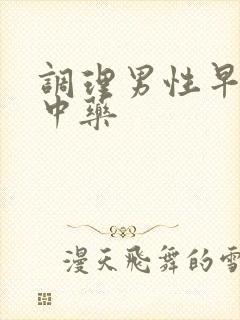 調理男性早
中藥
漫天飛舞的雪